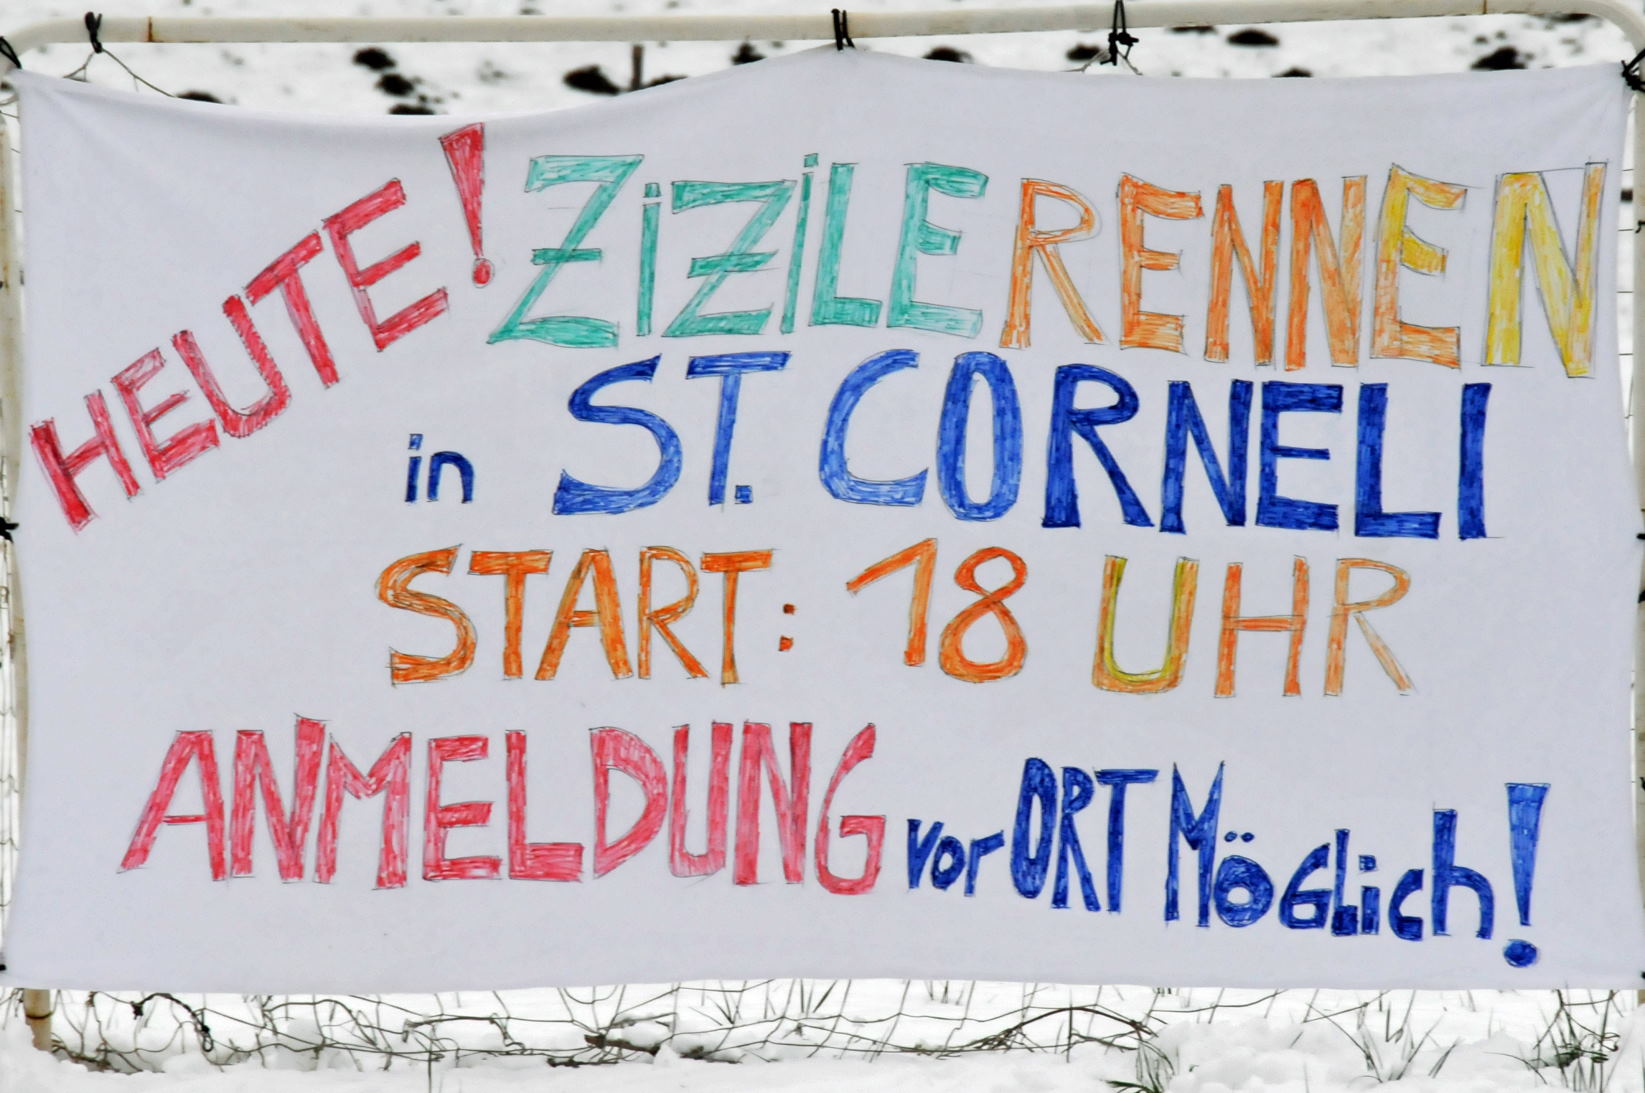 HEUTE! ZiZiLE RENNEN
in ST. CORNELI
START: 18 UHR
ANMELDUNG vor ORT MöGLich!